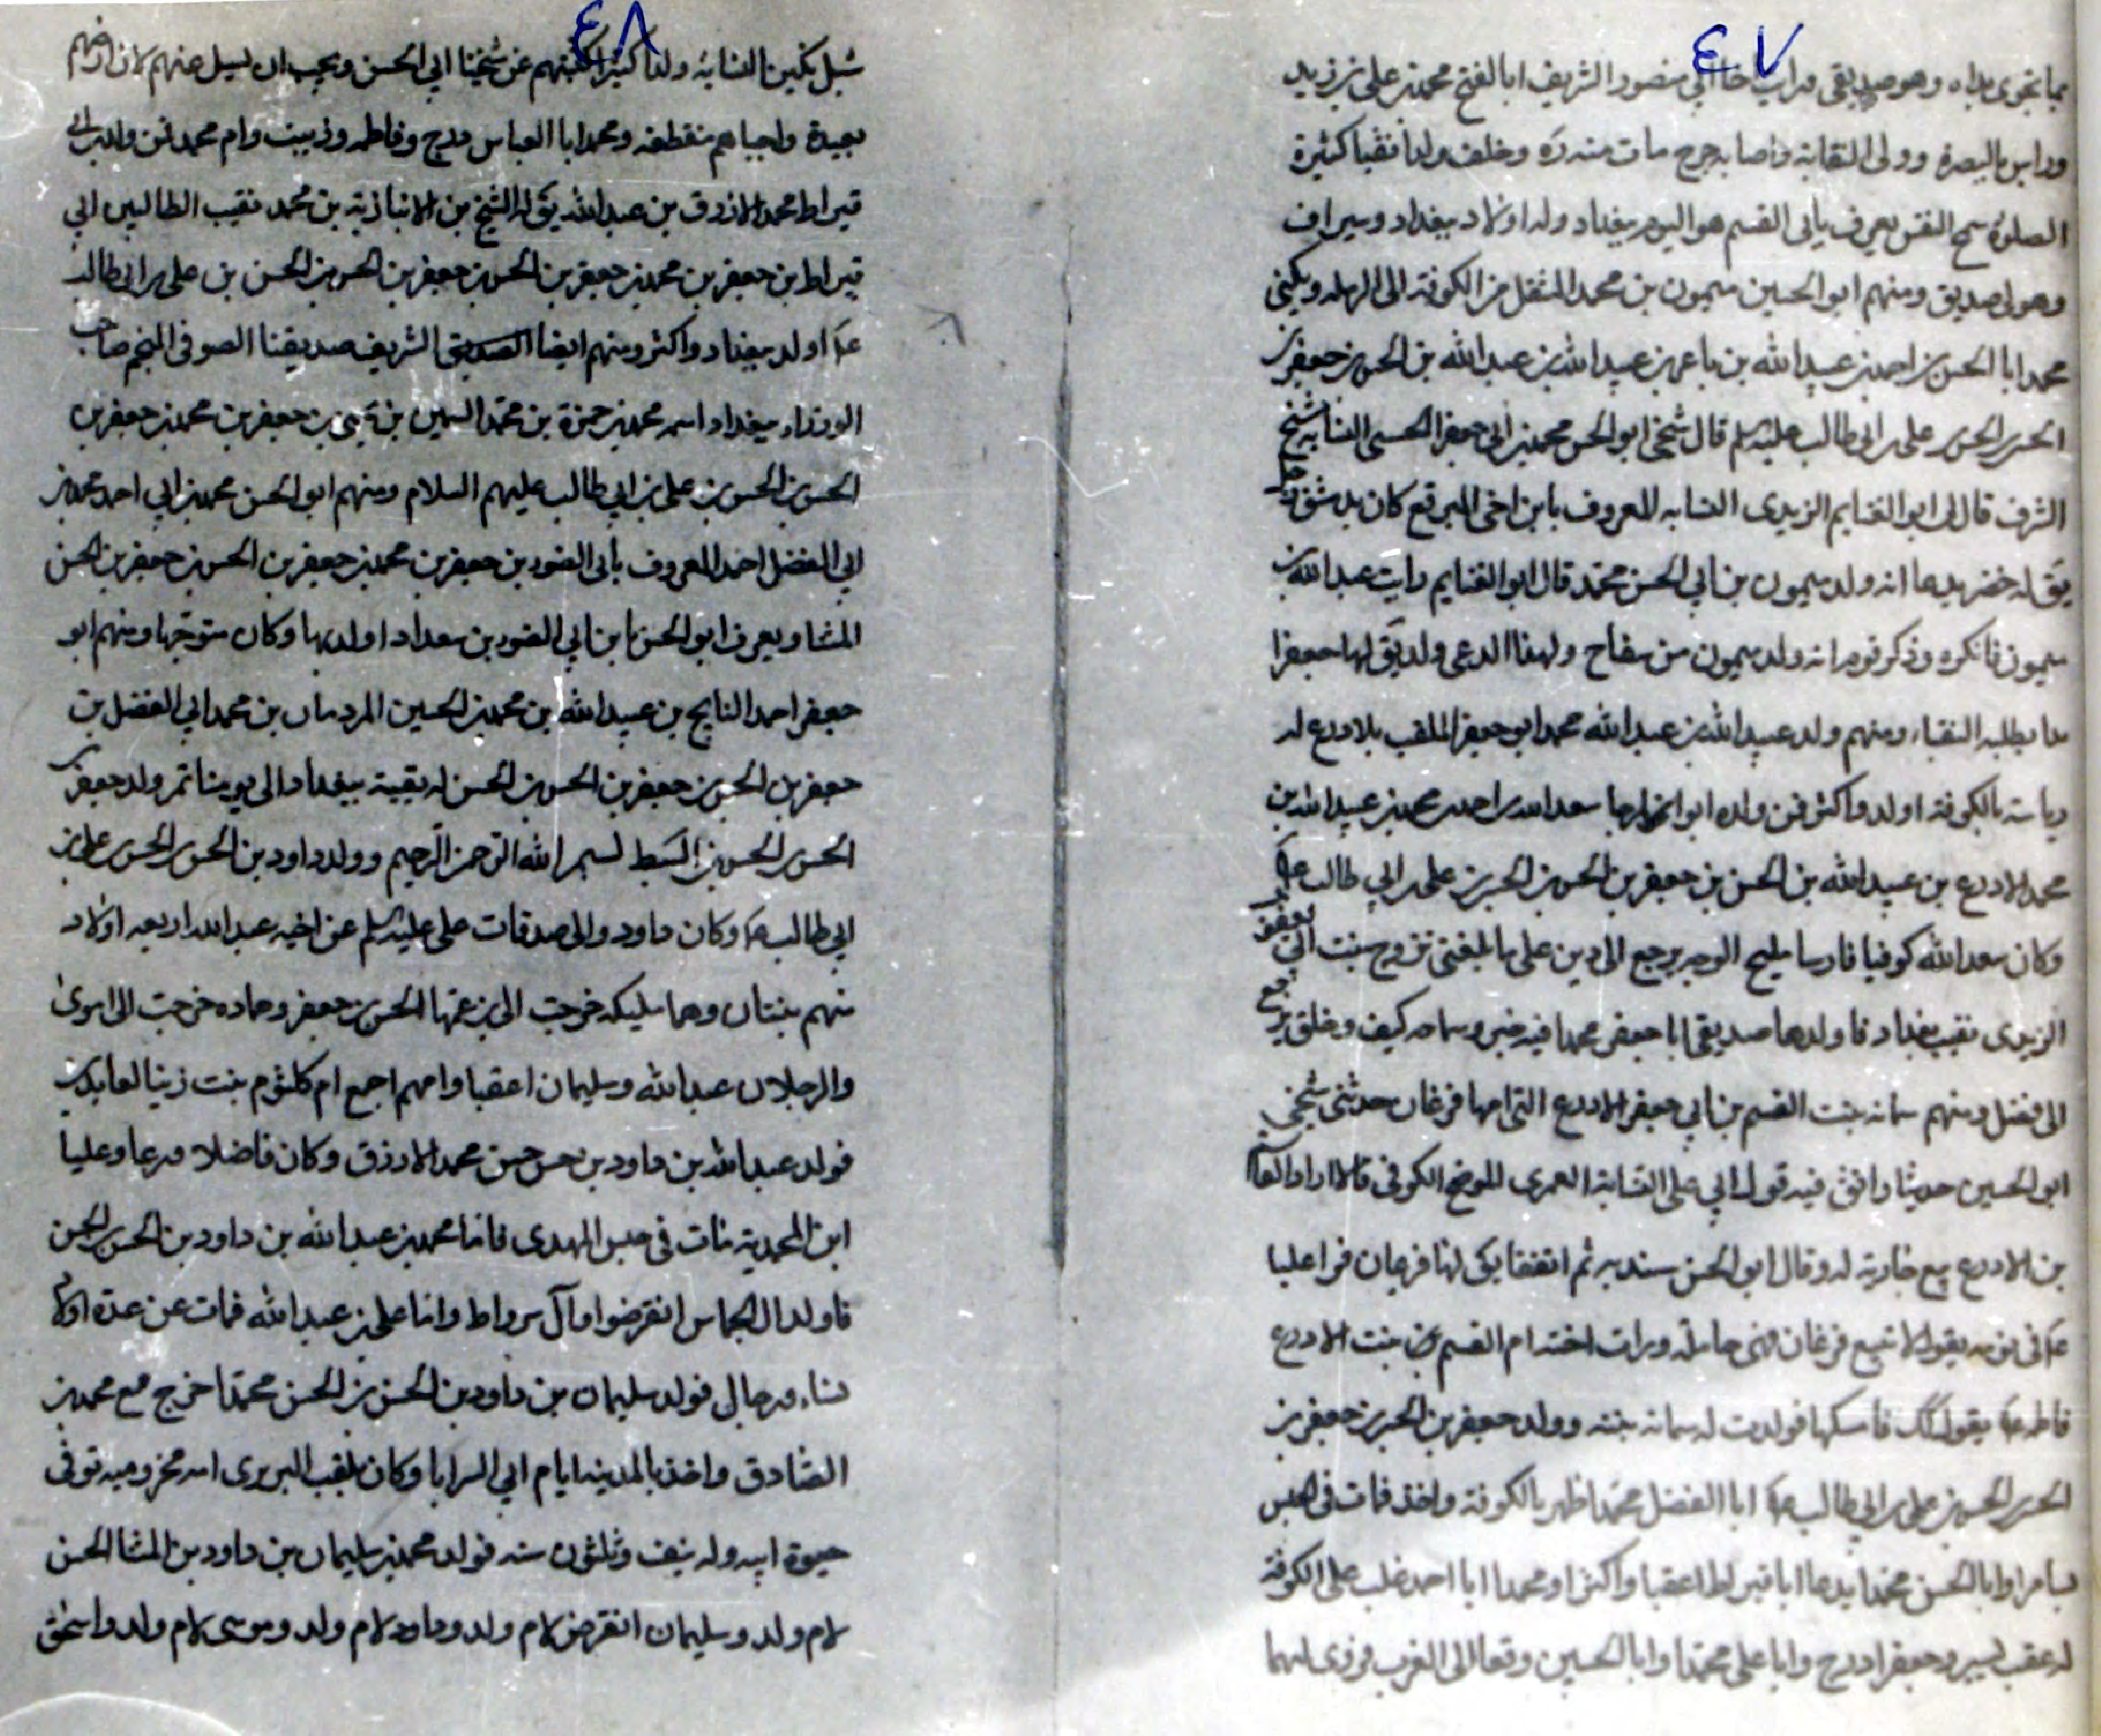 ٤٧
بما تحوى يداه وهو صديقى ورأيت خا ابي منصور الشريف ابا الفتح محمد بن على بن زيد
ودا بن بالبصرة وولى النقابة واصابه جرح مات منه ره وخلف ولدا نقيا كثيرة
الصلوة سمح النفس يعرف بأبى القسم هو اليوم ببغداد وله اولاد ببغداد وسيراف
وهو لى صديق ومنهم ابو الحسين ميمون بن محمد المنتقل من الكوفة الى الرمله ويكنى
محمد ابا الحسن بن احمد بن عبيد الله بن باعر بن عبيد الله بن عبد الله بن الحسن بن جعفر بن
الحسن بن الحسن بن على بن ابى طالب عليه السلم قال شيخى ابو الحسن محمد بن ابى جعفر الحسنى النسابه شيخ
الشرف قال لى ابو الغنايم الزيدى النسابه المعروف بابن اخى المبرقع كان بدمشق رجل
يق له خضر يدعا انه ولد ميمون بن ابي الحسن محمد قال ابو الغنايم رايت عبد الله بن
ميمون فانكره وذكر قوم انه ولد ميمون من سفاح ولهذا الدعى ولد يق لها جعفرا
ما يطلبه النقباء ومنهم ولد عبيد الله بن عبد الله محمد ابو جعفر الملقب بلادرع له
رياسة بالكوفة اولد واكثر فمن ولده ابو سعد الله بن احمد بن محمد بن عبيد الله بن
محمد الادرع بن عبيد الله بن الحسن بن جعفر بن الحسن بن الحسن بن على بن ابي طالب ع
وكان سعد الله كوفيا فارسا مليح الوجه يرجع الى دين على ما بلغنى تزوج بنت ابى يعفر
الزيدى نقيب بغداد فاولدها صديقى ابا جعفر محمدا فيه خير وسماحه كيف وخلق يرجع
الى فضل ومنهم سمانه بنت القسم بن ابي جعفر الادرع التى امها فرغان حدثنى شيخى
ابو الحسين حديثا وافق فيه قول ابي على النسابة العمرى الموضح الكوفى قالا اراد القاسم
بن الادرع بيع جارية له وقال ابو الحسن سنديه ثم اتفقا يق لها فرغان فراى عليا
ع فى نومه يقول لا تبيع فرغان فهى حاملة ورات اخته ام القسم بنت الادرع
فاطمه ع يقول ذلك فامسكها فولدت له سمانه بنته وولد جعفر بن الحسن بن جعفر بن
الحسن بن الحسن بن على بن ابي طالب ع ابا الفضل محمدا ظهر بالكوفة واخذ فمات فى الحبس
بسامرا وابا الحسن محمدا يدعا ابا قيراط اعقبا واكثرا ومحمدا ابا احمد غلب على الكوفة
له عقب يسير وجعفرا درج وابا على محمدا وابا الحسين وقعا الى الغرب فروى لهما
٤٨
شبل بن تكين النسابة ولدا كثيرا كتبتهم عن شيخنا ابي الحسن ويجب ان يسيل عنهم لان ارضهم
بعيدة واحياهم منقطعة ومحمدا ابا العباس درج وفاطمه وزينب وام محمد فمن ولد ابى
قيراط محمد الازرق بن عبد الله يق له الشيخ بن الانبازية بن محمد نقيب الطالبيين ابي
قيراط بن جعفر بن محمد بن جعفر بن الحسن بن جعفر بن الحسن بن الحسن بن على بن ابى طالب
ع اولد ببغداد واكثر ومنهم ايضا الصديق الشريف صديقنا الصوفى المنجم صاحب
الوزراء ببغداد اسمه محمد بن حمزة بن محمد السمين بن يحيى بن جعفر بن محمد بن جعفر بن
الحسن بن الحسن بن على بن ابي طالب عليهم السلام ومنهم ابو الحسن محمد بن ابي احمد محمد بن
ابي الفضل احمد المعروف بأبى الضود بن جعفر بن محمد بن جعفر بن الحسن بن جعفر بن الحسن
المثنا ويعرف ابو الحسن بابن ابي الضود بن بغداد اولد بها وكان متوجها ومنهم ابو
جعفر احمد النايح بن عبيد الله بن محمد بن الحسين المردمان بن محمد ابي الفضل بن
جعفر بن الحسن بن جعفر بن الحسن بن الحسن له بقية ببغداد الى يومنا تمر ولد جعفر بن
الحسن بن الحسن بن السبط بسم الله الرحمن الرحيم وولد داود بن الحسن بن الحسن بن على بن
ابي طالب ع وكان داود والى صدقات على عليه السلم عن اخيه عبد الله اربعه اولاد
منهم بنتان وهما مليكه خرجت الى بن عمها الحسن بن جعفر وحماده خرجت الى اموى
والرجلان عبد الله وسليمان اعقبا وامهم اجمع ام كلثوم بنت زين العابدين
فولد عبد الله بن داود بن حسن بن حسن محمد الازرق وكان فاضلا ورعا وعليا
ابن المحمدية مات فى حبس المهدى فاما محمد بن عبد الله بن داود بن الحسن بن الحسن
فاولد ال انقرضوا وآل واما على بن عبد الله فمات عن عدة اولاد
نساء ورجال فولد سليمان بن داود بن الحسن بن الحسن محمدا خرج مع محمد بن
الصادق واخذ بالمدينه ايام ابي السرايا وكان يلقب البربرى امه مخزوميه توفى
حيوة ابيه وله نيف وثلثون سنه فولد محمد بن سليمان بن داود بن المثنا الحسن
لام ولد وسليمان انقرض لام ولد وداود لام ولد وموسى لام ولد واسحق